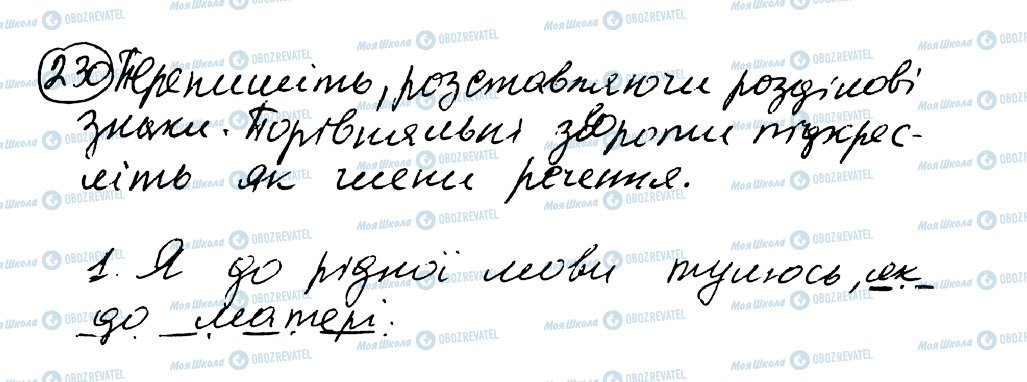 230 Перепишіть, розставляючи розділові
знаки. Порівняльні звороти підкрес-
літь як члени речення.
1. Я до рідної мови тулюсь, як
до матері.